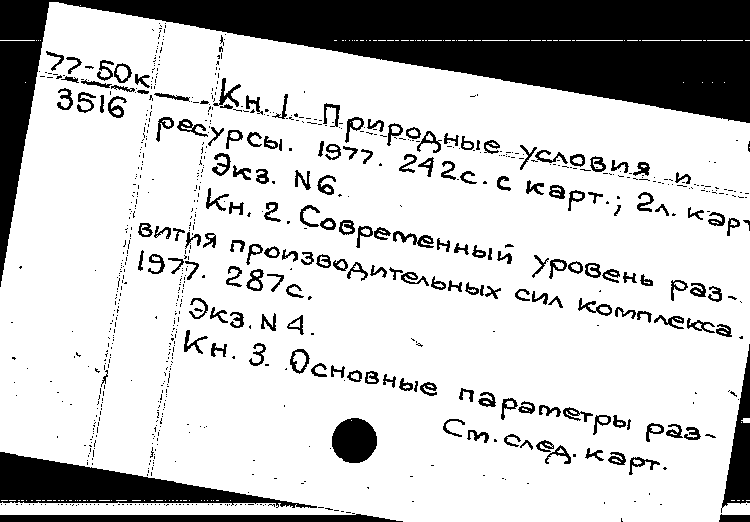 77-50к
3516
Кн. 1. Природные условия и
ресурсы. 1977. 242с. с карт.; 2л. карт
Экз. N6.
Кн. 2. Современный уровень раз-
вития производительных сил комплекса.
1977. 287с.
Экз. N 4.
Кн. 3. Основные параметры раз-
См. след. карт.